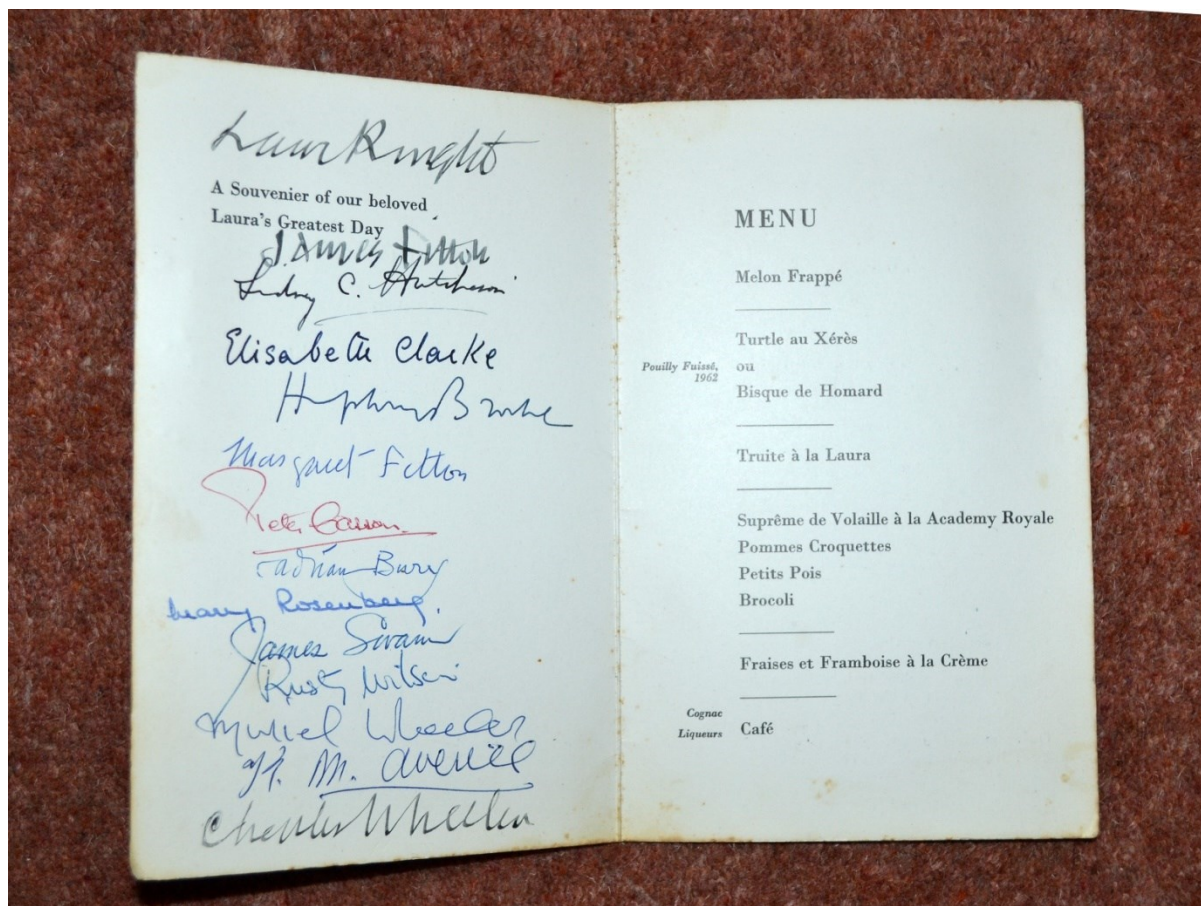 Laura Knight
A Souvenier of our beloved
Laura's Greatest Day
James Fitton
Sidney C. Hutchison
Elisabeth Clarke
Humphrey Brooke
Margaret Fitton
Peter Casson
Adrian Bury
Mary Rosenberg.
James Swann
Rusty Wilson
Muriel Wheeler
M. Averiël
Charles Wheeler
MENU
Melon Frappé
Turtle au Xérès
Pouilly Fuissé,
1962
ou
Bisque de Homard
Truite à la Laura
Suprême de Volaille à la Academy Royale
Pommes Croquettes
Petits Pois
Brocoli
Fraises et Framboise à la Crème
Cognac
Liqueurs
Café